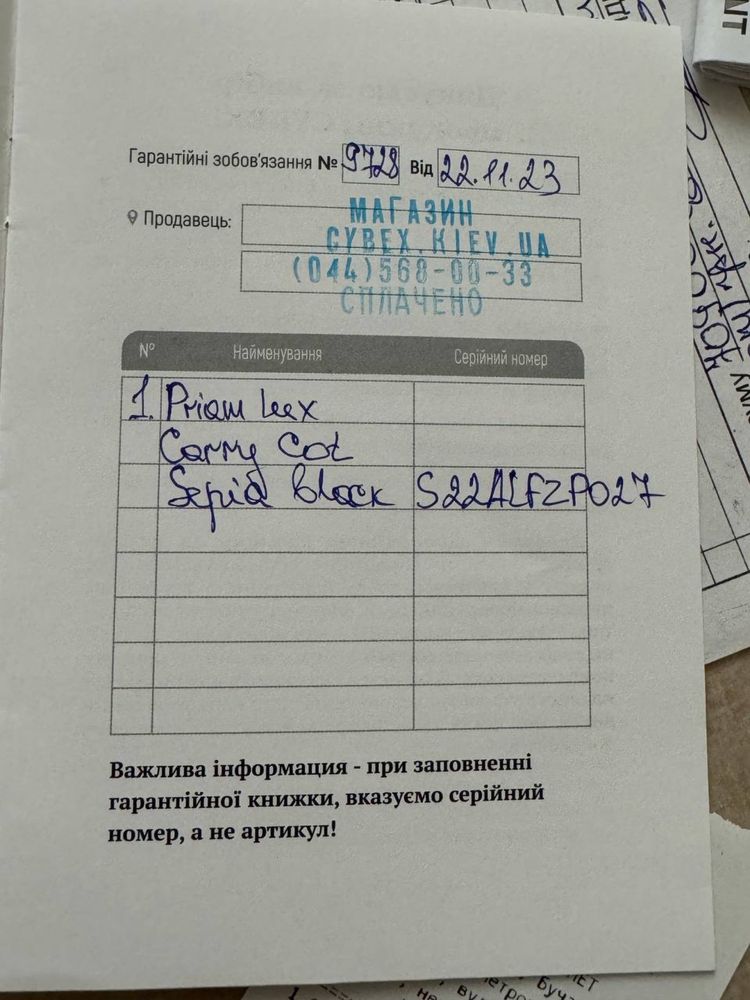 Гарантійні зобов'язання № 9728 Від 22.11.23
Продавець:
МАГАЗИН
CYBEX.KIEV.UA
(044)568-00-33
СПЛАЧЕНО
№ Найменування Серійний номер
1. Priam Lux
Carry Cot
Sepia black S22ALFZP027
Важлива інформация - при заповненні
гарантійної книжки, вказуємо серійний
номер, а не артикул!